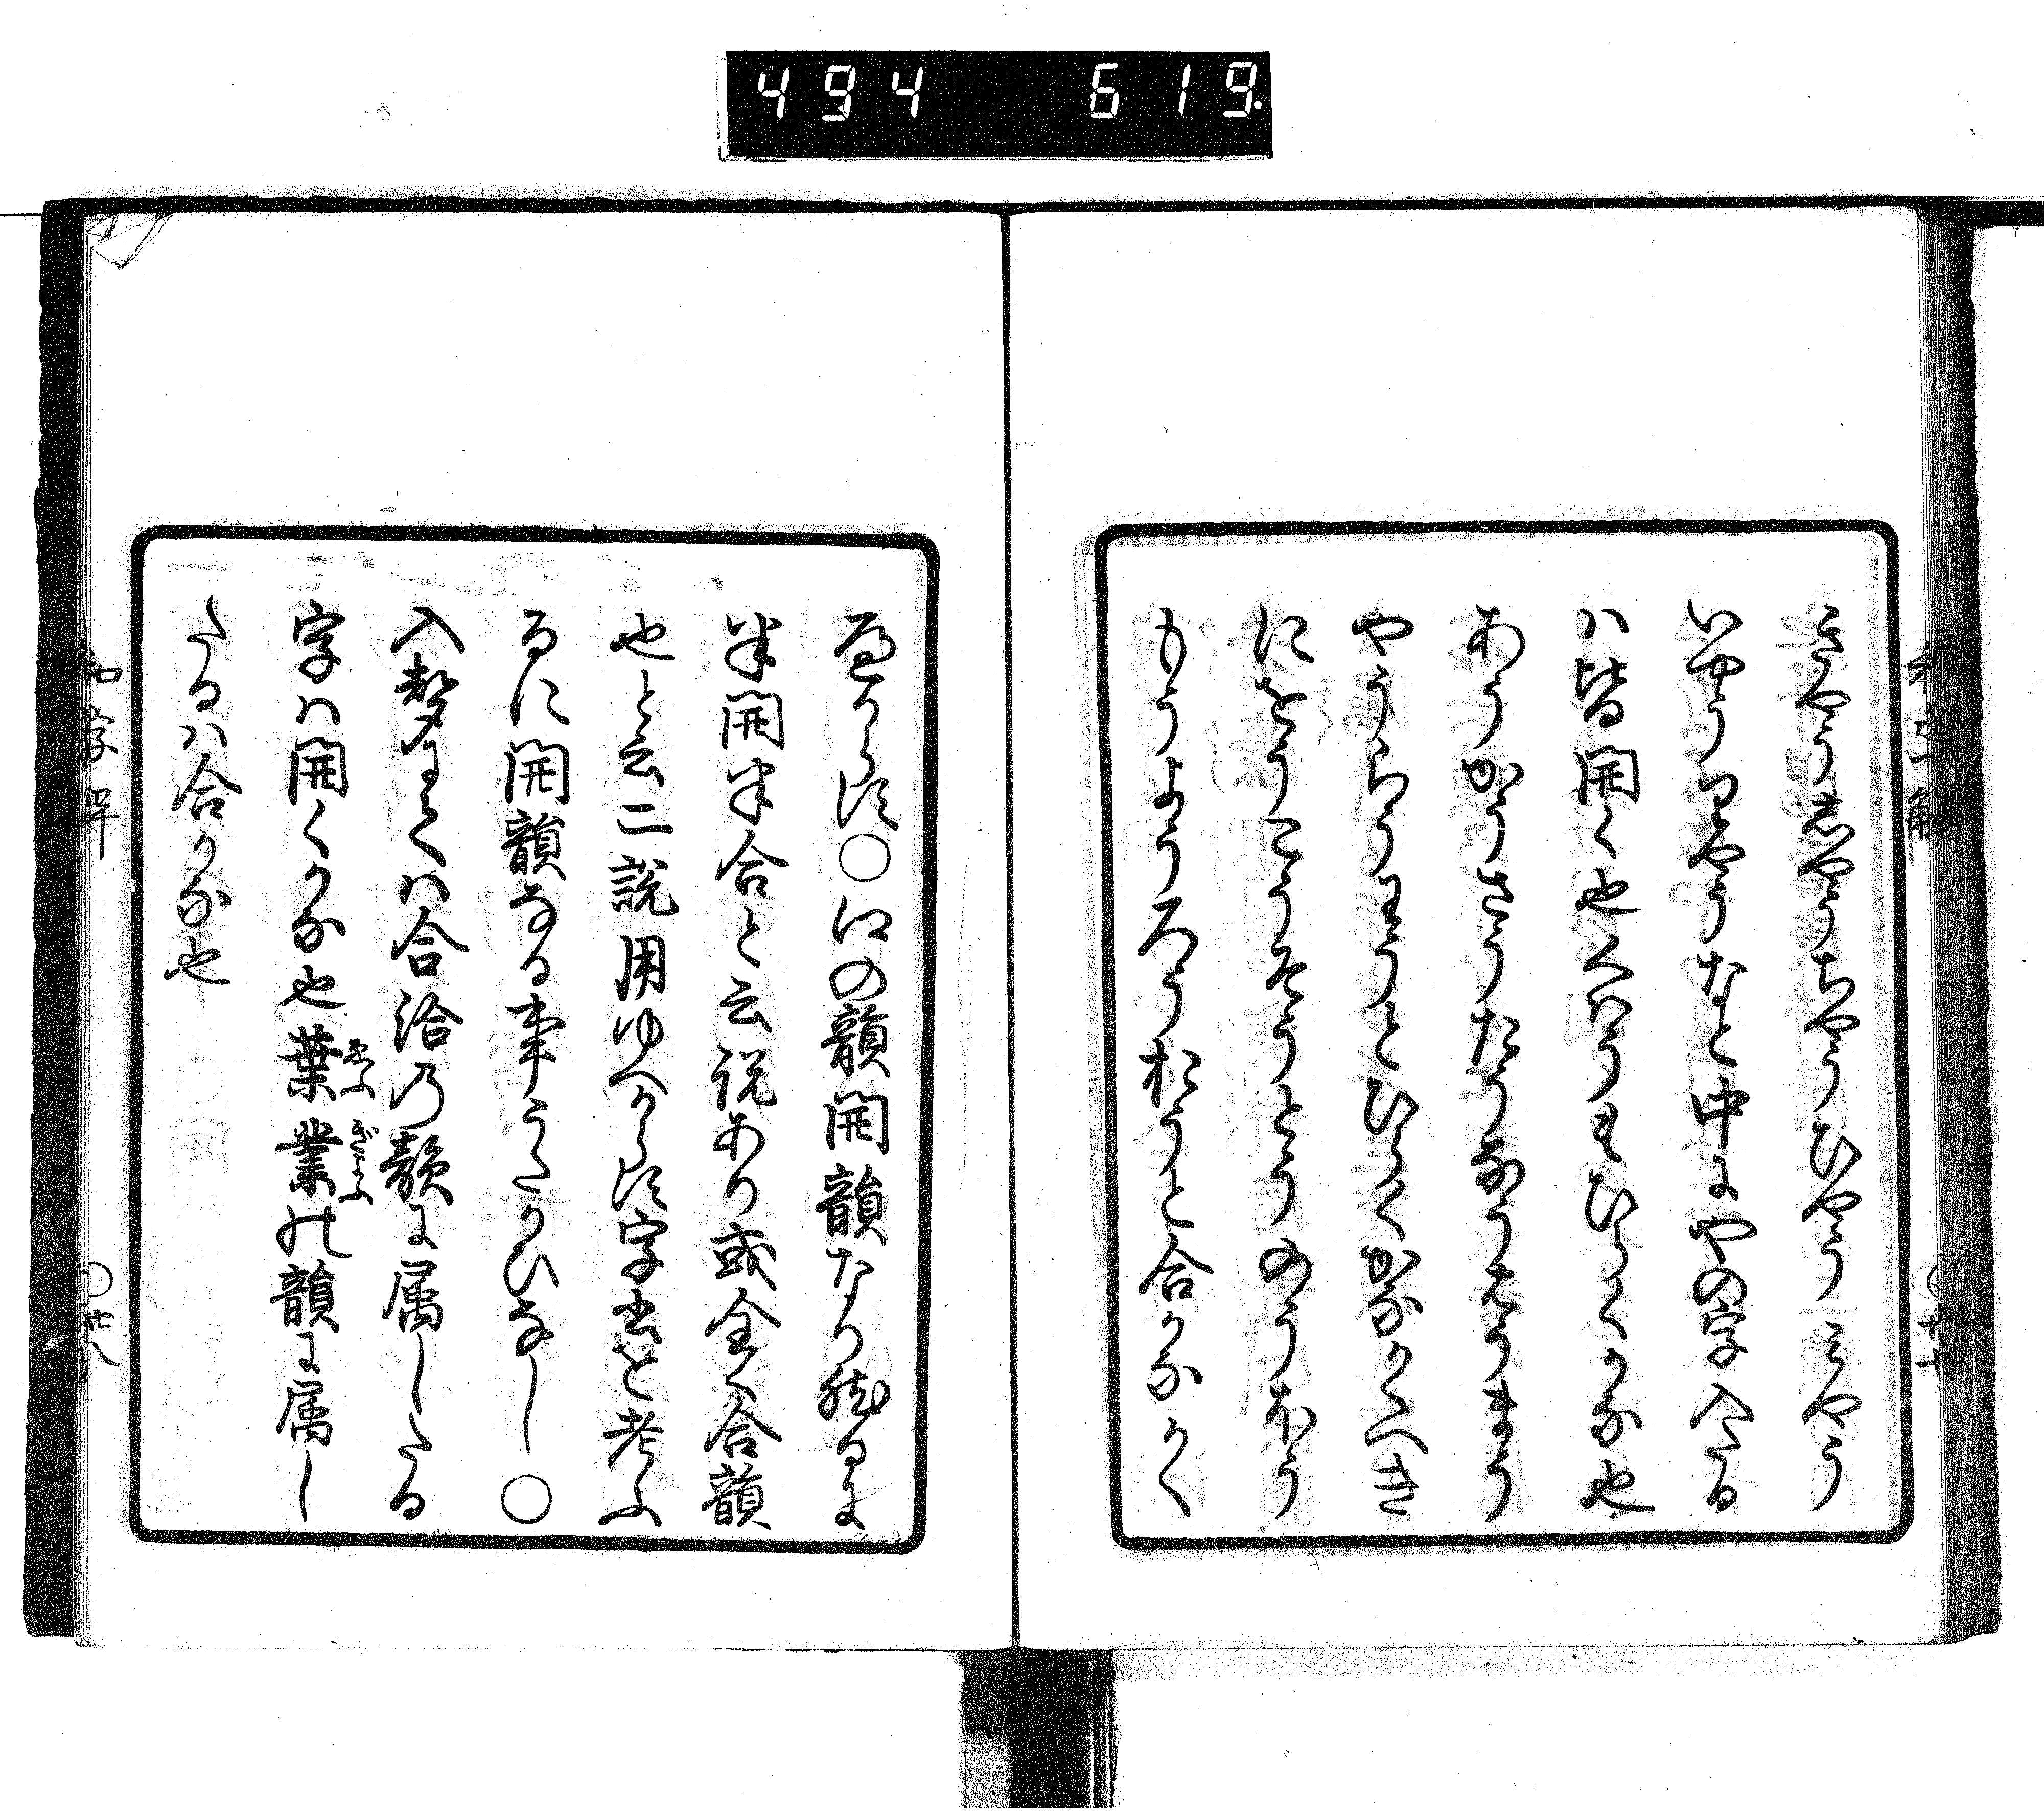 494 619.
きやう志やうちやうひやうミやう
いやうりやうなと中にやの字入たる
ハ皆開く也くハうもひらくかな也
あうかうさうたうなうはうまう
やうらうわうとひらくかなかくへき
にをうこうそうとうのうほうう
もうようろうおうと合かなかく
へからす〇江の韻開韻なり然るに
半開半合と云説あり或全く合韻
也と云二説用ゆへからす字書を考ふ
るに開韻なる事うたかひなし〇
入聲にてハ合洽乃韻に属したる
字ハ開くかな也葉業の韻に属し
えふ ぎよふ
たるハ合かな也
和字解
〇廿八